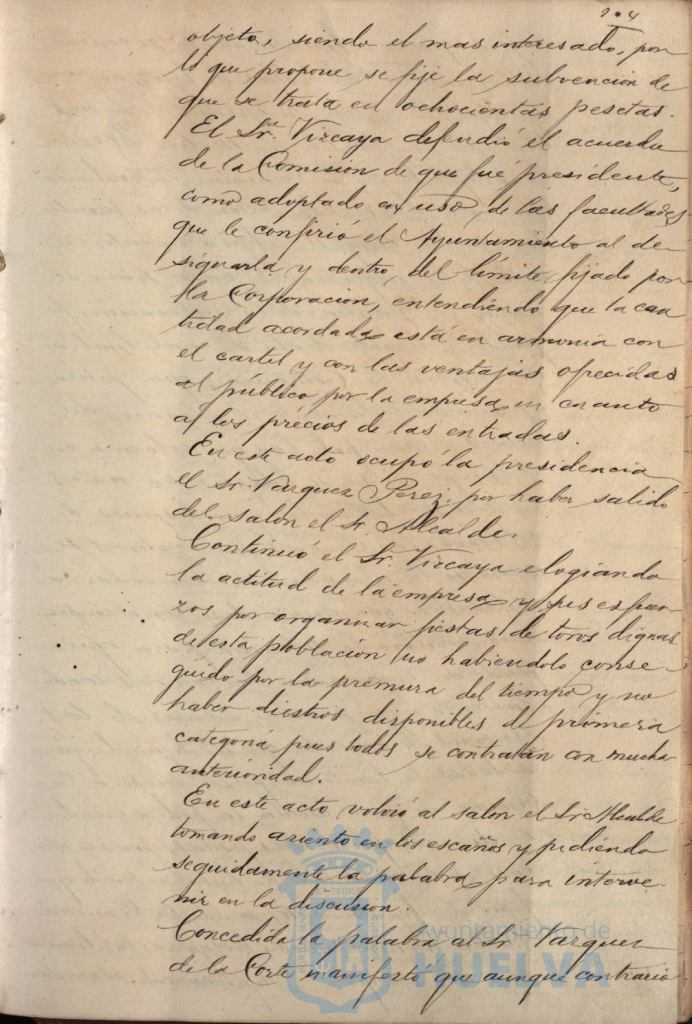 objeto, siendo el mas interesado, por
lo que propone, se fije la subvención de
que se trata en ochocientas pesetas.
El Sr. Vizcaya defendió el acuerdo
de la Comision de que fué presidente,
como adoptado en uso de las facultades
que le confirió el Ayuntamiento al de
signarla y dentro del límite fijado por
la Corporacion, entendiendo que la can
tidad acordada está en armonia con
el cartel y con las ventajas ofrecidas
al público por la empresa en cuanto
a los précios de las entradas.
En este acto ocupó la presidencia
el Sr. Vazquez Perez, por haber salido
del salon el Sr. Alcalde.
Continuó el Sr. Vizcaya elogiando
la actitud de la empresa y sus esfuer
zos por organizar fiestas de toros dignas
de esta poblacion no habiendolo conse-
guido por la premura del tiempo y no
haber diestros disponibles de primera
categoria pues todos se contratan con mucha
anterioridad.
En este acto volvió al salon el Sr. Alcalde
tomando asiento en los escaños y pidiendo
seguidamente la palabra para interve-
nir en la discusion.
Concedida la palabra al Sr. Vazquez
de la Corte manifestó que aunque contrario
Ayuntamiento de
HUELVA